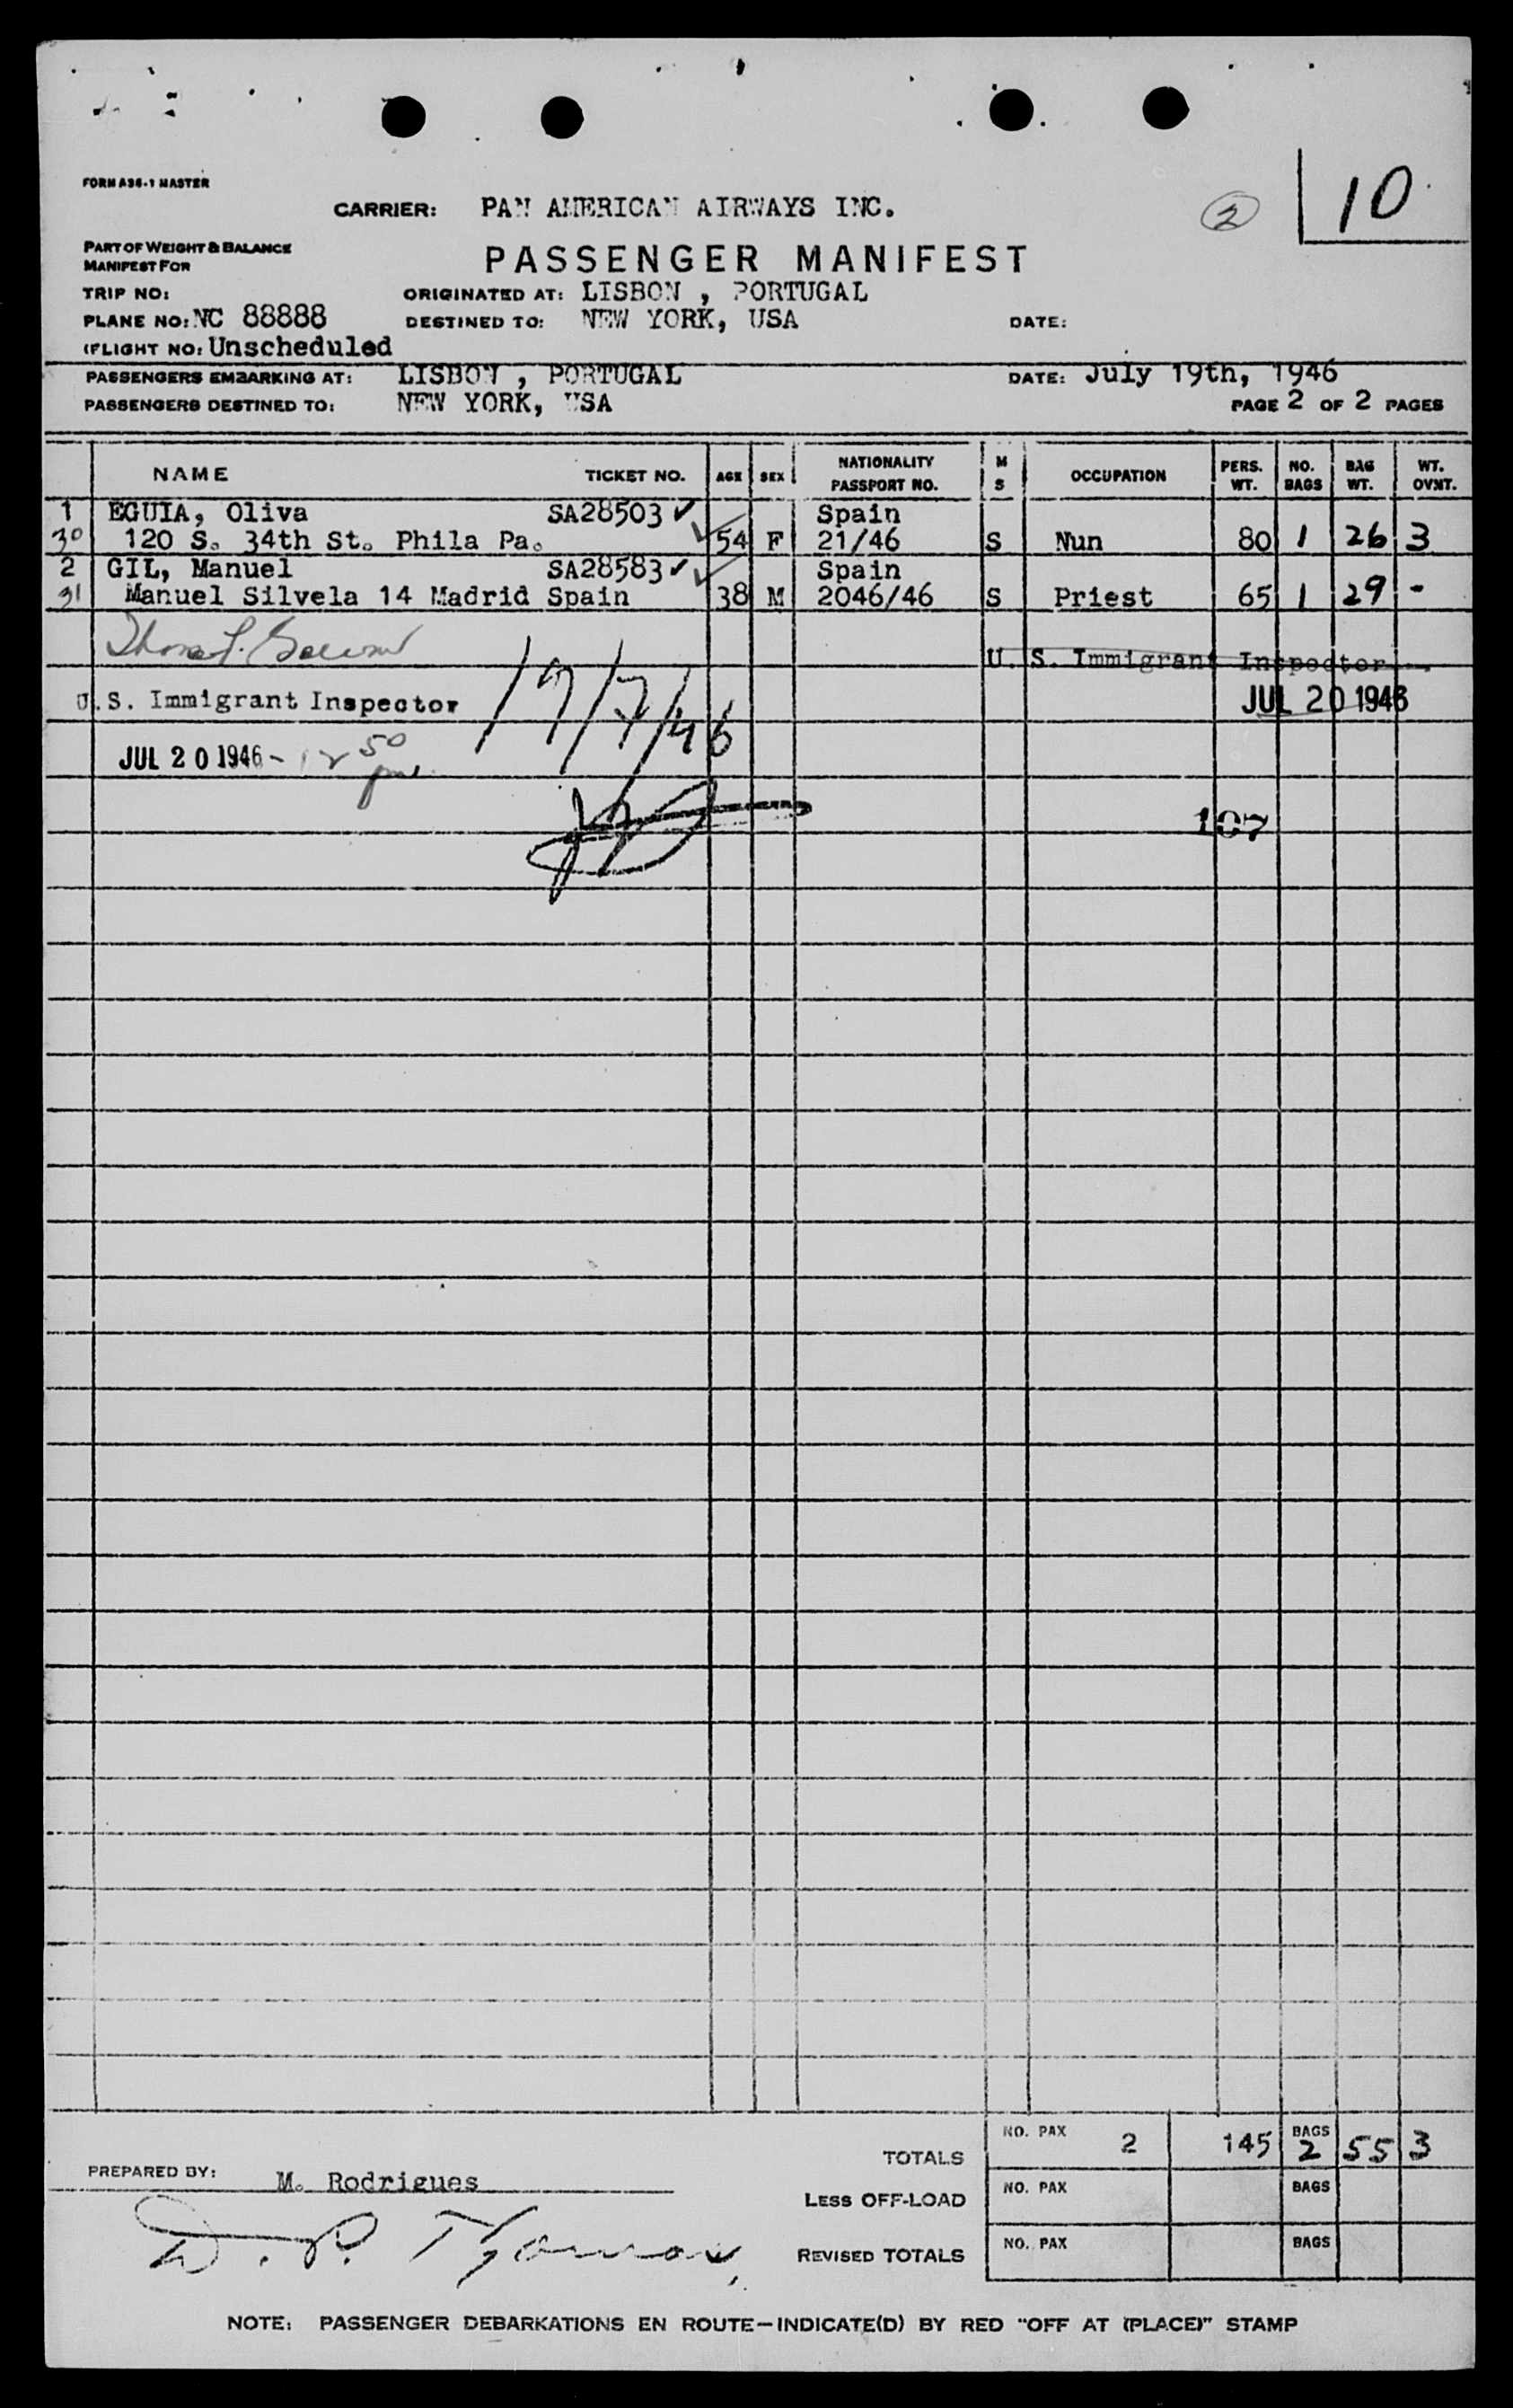 10
2
FORM A36-1 MASTER
CARRIER: PAN AMERICAN AIRWAYS INC.
PART OF WEIGHT & BALANCE
MANIFEST FOR
PASSENGER MANIFEST
TRIP NO:
ORIGINATED AT: LISBON , PORTUGAL
PLANE NO: NC 88888
DESTINED TO: NEW YORK, USA
DATE:
(FLIGHT NO: Unscheduled
PASSENGERS EMBARKING AT: LISBON , PORTUGAL
DATE: July 19th, 1946
PASSENGERS DESTINED TO: NEW YORK, USA
PAGE 2 OF 2 PAGES
NAME TICKET NO. AGE SEX NATIONALITY PASSPORT NO. M S OCCUPATION PERS. WT. NO. BAGS BAG WT. WT. OVWT.
1 EGUIA, Oliva SA28503 ✓ Spain
30 120 S. 34th St. Phila Pa. 54 F 21/46 S Nun 80 1 26 3
2 GIL, Manuel SA28583 ✓ Spain
31 Manuel Silvela 14 Madrid Spain 38 M 2046/46 S Priest 65 1 29 -
U. S. Immigrant Inspector
JUL 20 1946
U.S. Immigrant Inspector
19/7/46
JUL 20 1946 - 12 50
pm.
107
TOTALS NO. PAX 2 145 BAGS 2 55 3
PREPARED BY: M. Rodrigues
LESS OFF-LOAD NO. PAX BAGS
REVISED TOTALS NO. PAX BAGS
NOTE: PASSENGER DEBARKATIONS EN ROUTE—INDICATE(D) BY RED "OFF AT (PLACE)" STAMP